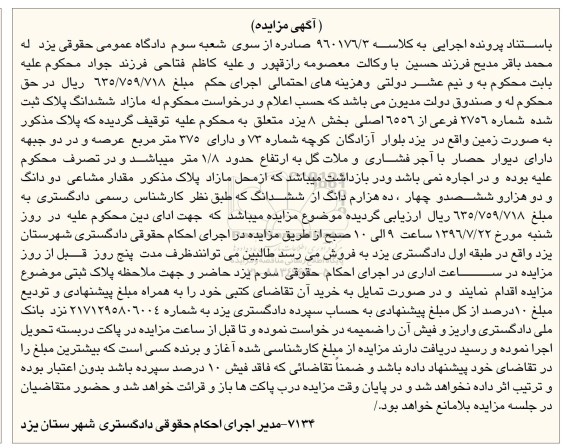 ( آگهی مزایده )
باستناد پرونده اجرایی به کلاسه ۹۶۰۱۷۶/۳ صادره از سوی شعبه سوم دادگاه عمومی حقوقی یزد له
محمد باقر مدیح فرزند حسین با وکالت معصومه رازقپور و علیه کاظم فتاحی فرزند جواد محکوم علیه
بابت محکوم به و نیم عشر دولتی وهزینه های احتمالی اجرای حکم مبلغ ۶۳۵/۷۵۹/۷۱۸ ریال در حق
محکوم له و صندوق دولت مدیون می باشد که حسب اعلام و درخواست محکوم له مازاد ششدانگ پلاک ثبت
شده شماره ۲۷۵۶ فرعی از ۶۵۵۶ اصلی بخش ۸ یزد متعلق به محکوم علیه توقیف گردیده که پلاک مذکور
به صورت زمین واقع در یزد بلوار آزادگان کوچه شماره ۷۳ و دارای ۳۷۵ متر مربع عرصه و در دو جبهه
دارای دیوار حصار با آجر فشاری و ملات گل به ارتفاع حدود ۱/۸ متر میباشد و در تصرف محکوم
علیه بوده و در اجاره نمی باشد ودر بازداشت میباشد که ازمحل مازاد پلاک مذکور مقدار مشاعی دو دانگ
و دو هزارو ششصدو چهار ، ده هزارم دانگ از ششدانگ که طبق نظر کارشناس رسمی دادگستری به
مبلغ ۶۳۵/۷۵۹/۷۱۸ ریال ارزیابی گردیده موضوع مزایده میباشد که جهت ادای دین محکوم علیه در روز
شنبه مورخ ۱۳۹۶/۷/۲۲ ساعت ۹ الی ۱۰ صبح از طریق مزایده در اجرای احکام حقوقی دادگستری شهرستان
یزد واقع در طبقه اول دادگستری یزد به فروش می رسد طالبین می توانندظرف مدت پنج روز قبل از روز
مزایده در ساعت اداری در اجرای احکام حقوقی سوم یزد حاضر و جهت ملاحظه پلاک ثبتی موضوع
مزایده اقدام نمایند و در صورت تمایل به خرید آن تقاضای کتبی خود را به همراه مبلغ پیشنهادی و تودیع
مبلغ ۱۰درصد از کل مبلغ پیشنهادی به حساب سپرده دادگستری یزد به شماره ۲۱۷۱۲۹۵۸۰۶۰۰۴ نزد بانک
ملی دادگستری واریز و فیش آن را ضمیمه در خواست نموده و تا قبل از ساعت مزایده در پاکت دربسته تحویل
اجرا نموده و رسید دریافت دارند مزایده از مبلغ کارشناسی شده آغاز و برنده کسی است که بیشترین مبلغ را
در تقاضای خود پیشنهاد داده باشد و ضمناً تقاضائی که فاقد فیش ۱۰ درصد سپرده باشد بدون اعتبار بوده
و ترتیب اثر داده نخواهد شد و در پایان وقت مزایده درب پاکت ها باز و قرائت خواهد شد و حضور متقاضیان
در جلسه مزایده بلامانع خواهد بود./
۷۱۳۴-مدیر اجرای احکام حقوقی دادگستری شهرستان یزد